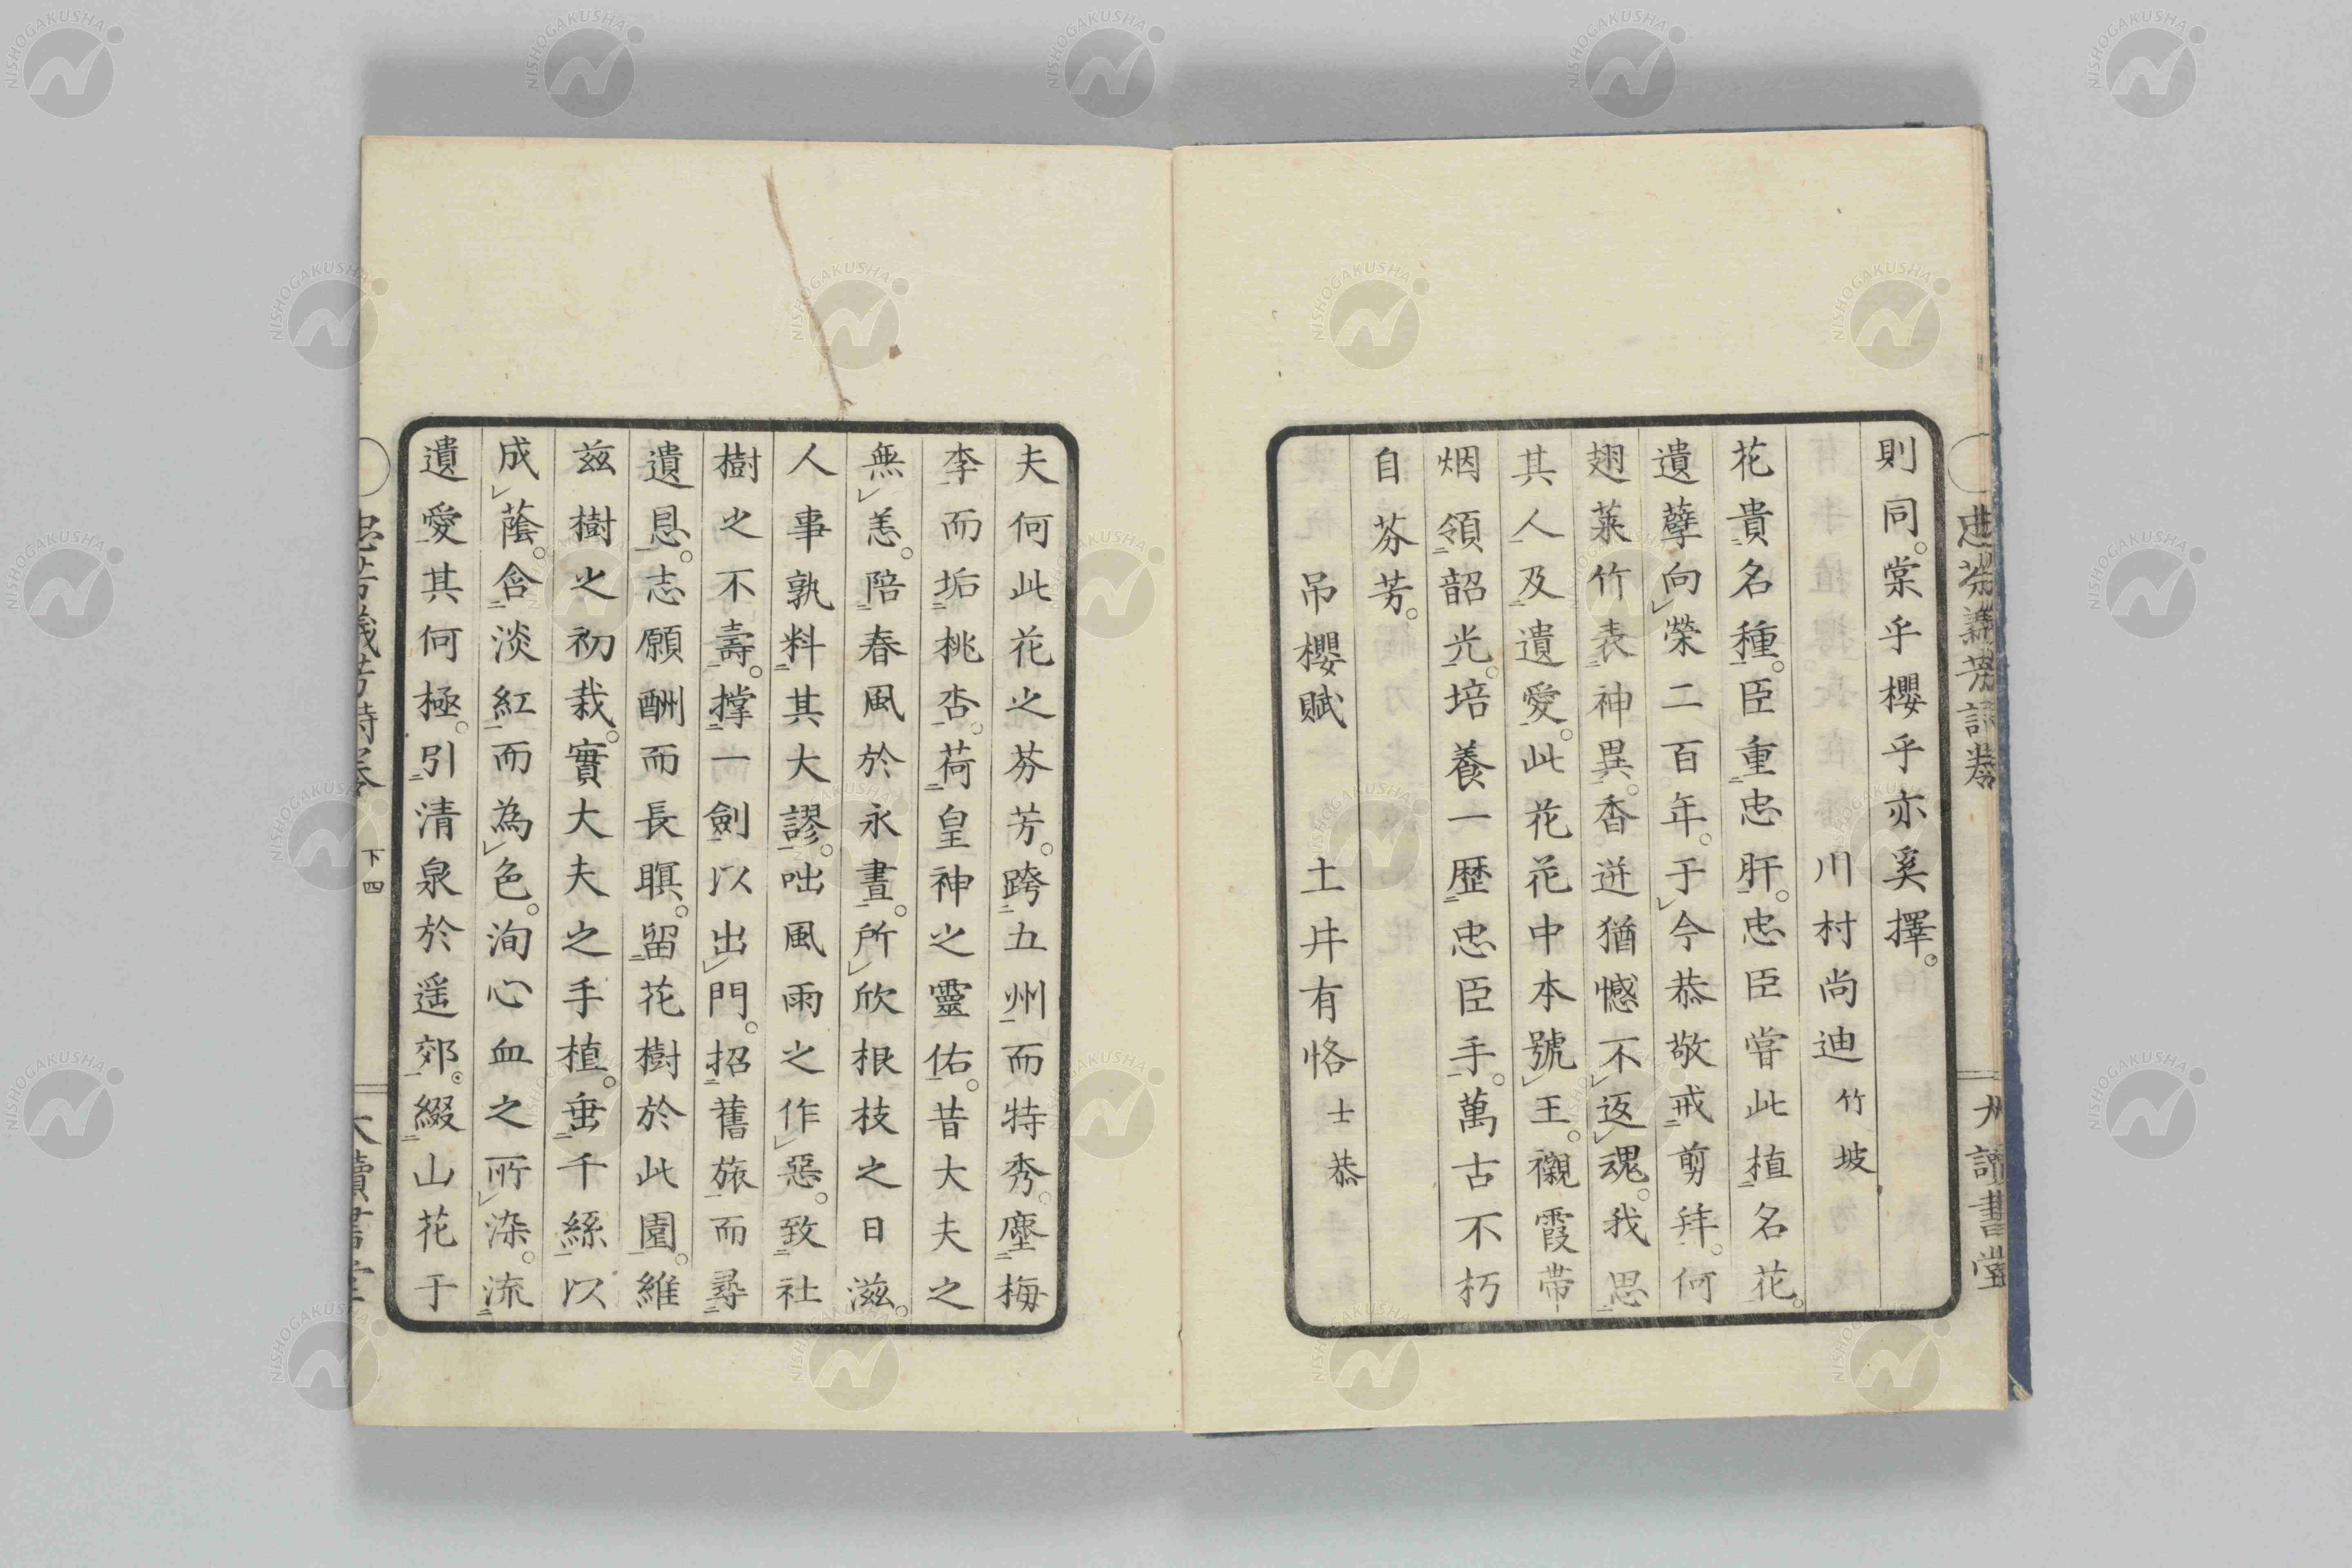 則同。棠乎櫻乎亦奚擇。
川村尚迪 竹坡
花貴名種。臣重忠肝。忠臣嘗此植名花。
遺孽向榮二百年。于今恭敬戒剪拜。何
翅萊竹表神異。香迸猶憾不返魂。我思
其人及遺愛。此花花中本號王。襯霞帶
烟領韶光。培養一歴忠臣手。萬古不朽
自芬芳。
吊櫻賦 土井有恪 士恭
夫何此花之芬芳。跨五州而特秀。壓梅
李而垢桃杏。荷皇神之靈佑。昔大夫之
無恙。陪春風於永晝。所欣根枝之日滋。
人事孰料其大謬。咄風雨之作惡。致社
樹之不壽。撑一劍以出門。招舊旅而尋
遺恩。志願酬而長瞑。留花樹於此園。維
玆樹之初栽。實大夫之手植。垂千絲以
成蔭。含淡紅而為色。洵心血之所染。流
遺愛其何極。引清泉於遥郊。綴山花于
忠芬義芳詩巻
下四
大讀書堂
NISHOGAKUSHA